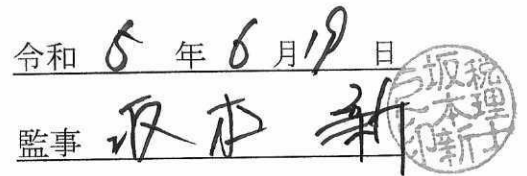 令和 5 年 6 月 19 日
監事 坂本 新
税理士
坂本新
之印